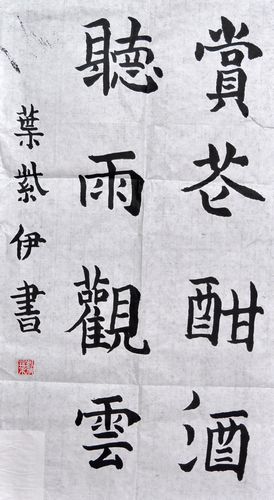 賞芲酣酒
聽雨觀雲
葉紫伊書